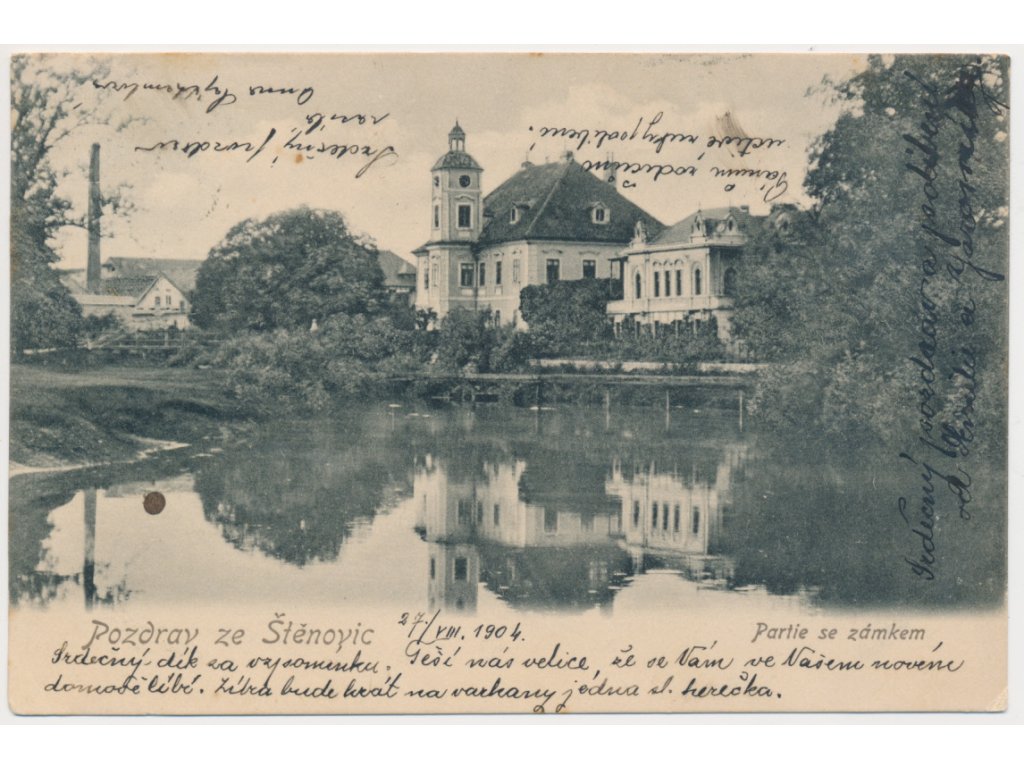 Anna
zasílá
Srdečný pozdrav
Pánům rodičům
uctivé ruky políbení.
Srdečný pozdrav a políbení
od
Pozdrav ze Štěnovic
27./VIII. 1904.
Partie se zámkem
Srdečný dík za vzpomenku. Těší nás velice, že se Vám ve Vašem novém
domově líbí. Zítra bude hrát na varhany jedna sl. herečka.